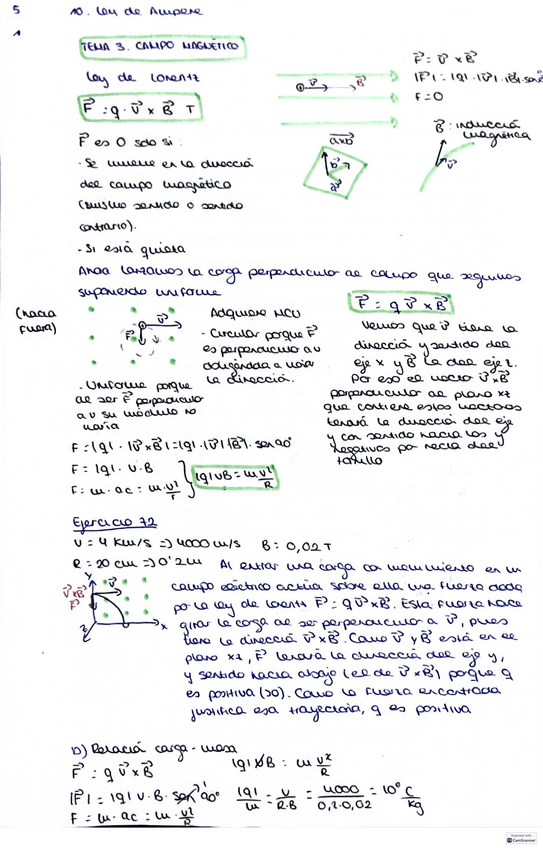 5
10. Ley de Ampere
1
TEMA 3. CAMPO MAGNÉTICO
Ley de Lorentz
F = q · v x B T
F = v x B
|F| = |q| · |v| · |B| · sen 0°
F = 0
v
B
B: inducción magnética
v
axb
b
a
F es 0 solo si:
- Se mueve en la dirección
del campo magnético
(mismo sentido o sentido
contrario).
- Si está quieta
Ahora lanzamos la carga perpendicular al campo que seguimos
suponiendo uniforme
(hacia fuera)
v
F
Adquiere MCU
- Circular porque F
es perpendicular a v
obligándola a variar
la dirección.
- Uniforme porque
al ser F perpendicular
a v su módulo no
varía
F = |q| · |v x B| = |q| · |v| |B| · sen 90°
F = |q| · v · B
F = m · ac = m · v²/r
|q| v B = m v²/R
F = q v x B
Vemos que v tiene la
dirección y sentido del
eje x y B la del eje z.
Por eso el vector v x B
perpendicular al plano xz
que contiene estos vectores
tendrá la dirección del eje
y con sentido hacia los y
negativos por regla del
tornillo
Ejercicio 72
v = 4 km/s => 4000 m/s B = 0,02 T
R = 20 cm => 0'2 m
y
v x B
F
v
x
z
Al entrar una carga con movimiento en un
campo eléctrico actúa sobre ella una fuerza dada
por la ley de Lorentz F = q v x B. Esta fuerza hace
girar la carga al ser perpendicular a v, pues
tiene la dirección v x B. Como v y B está en el
plano xz, F tendrá la dirección del eje y,
y sentido hacia abajo (el de v x B) porque q
es positiva (>0). Como la fuerza encontrada
justifica esa trayectoria, q es positiva
b) Relación carga - masa
F = q v x B
|q| v B = m v²/R
|F| = |q| v · B · sen 90° 1
|q|/m = v/(R·B) = 4000/(0,2·0,02) = 10⁶ C/kg
F = m · ac = m · v²/R
Scanned with
CamScanner